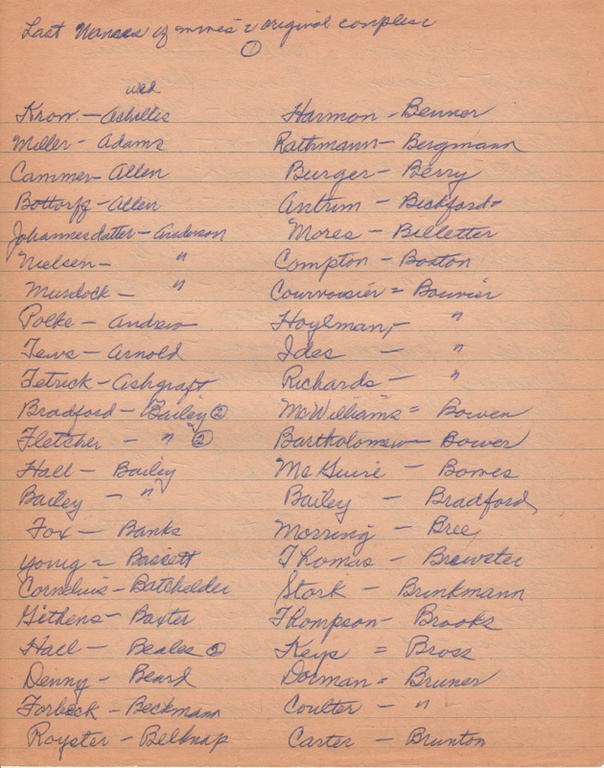 Last Names of original couples
①
wed
Krow. - Achilles
Miller - Adams
Cammer - Allen
Bottorff - Allen
Johannesdatter - Anderson
Nielsen - "
Murdock - "
Polke - Andrew
Tews - Arnold
Fetrick - Ashgraft
Bradford - Bailey ②
Fletcher - " ②
Hall - Bailey
Bailey - "
Fox - Banks
Young = Bassett
Cornelius - Batchelder
Githens - Baxter
Hall - Beales ②
Denny - Beard
Forbeck - Beckmann
Royster - Belknap
Harmon - Benner
Rathmann - Bergmann
Burger - Berry
Antrim - Bickford
Mores - Billetter
Compton - Boston
Courvoisier = Bouvier
Hoylman - "
Ides - "
Richards - "
McWilliams = Bowen
Bartholomew - Bower
McGuire - Bowes
Bailey - Bradford
Morring - Bree
Thomas - Brewster
Stork - Brinkmann
Thompson - Brooks
Keys = Bross
Dorman = Bruner
Coulter - "
Carter - Brunton